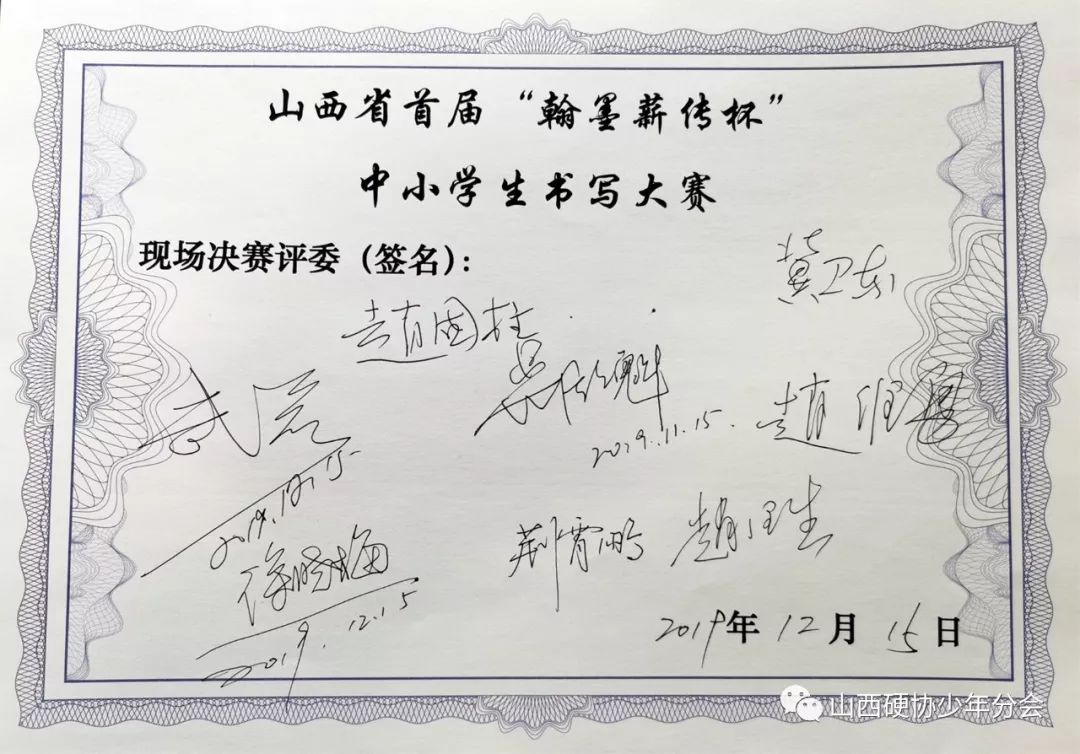 山西省首届“翰墨薪传杯”
中小学生书写大赛
现场决赛评委（签名）：
黄卫东
赵国柱
2019.11.15.
赵
2019.12.15
荆霄鹏
赵
徐晓梅
2019.12.15
2019年12月15日
山西硬协少年分会